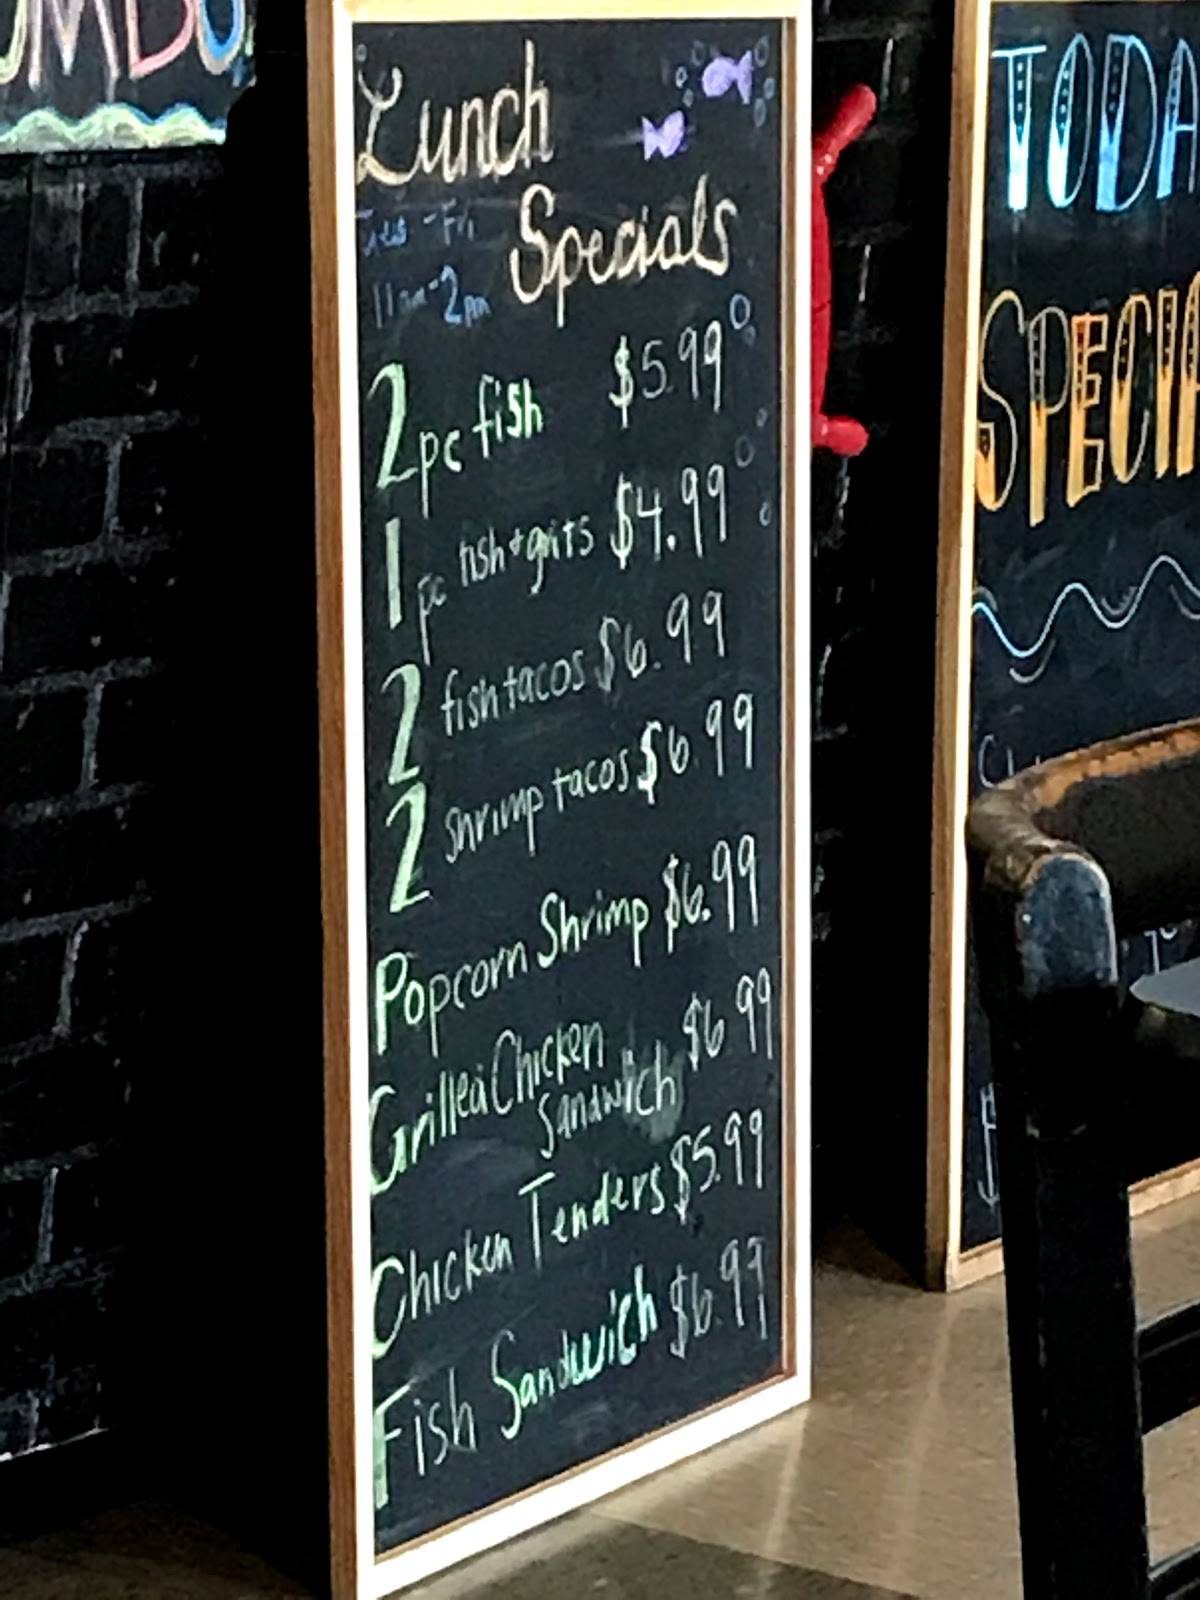 Lunch
Specials
Tues - Fri
11am-2pm
2pc fish $5.99
1pc fish + grits $4.99
2 fish tacos $6.99
2 shrimp tacos $6.99
Popcorn Shrimp $6.99
Grilled Chicken
Sandwich $6.99
Chicken Tenders $5.99
Fish Sandwich $6.99
TODA
SPECIA